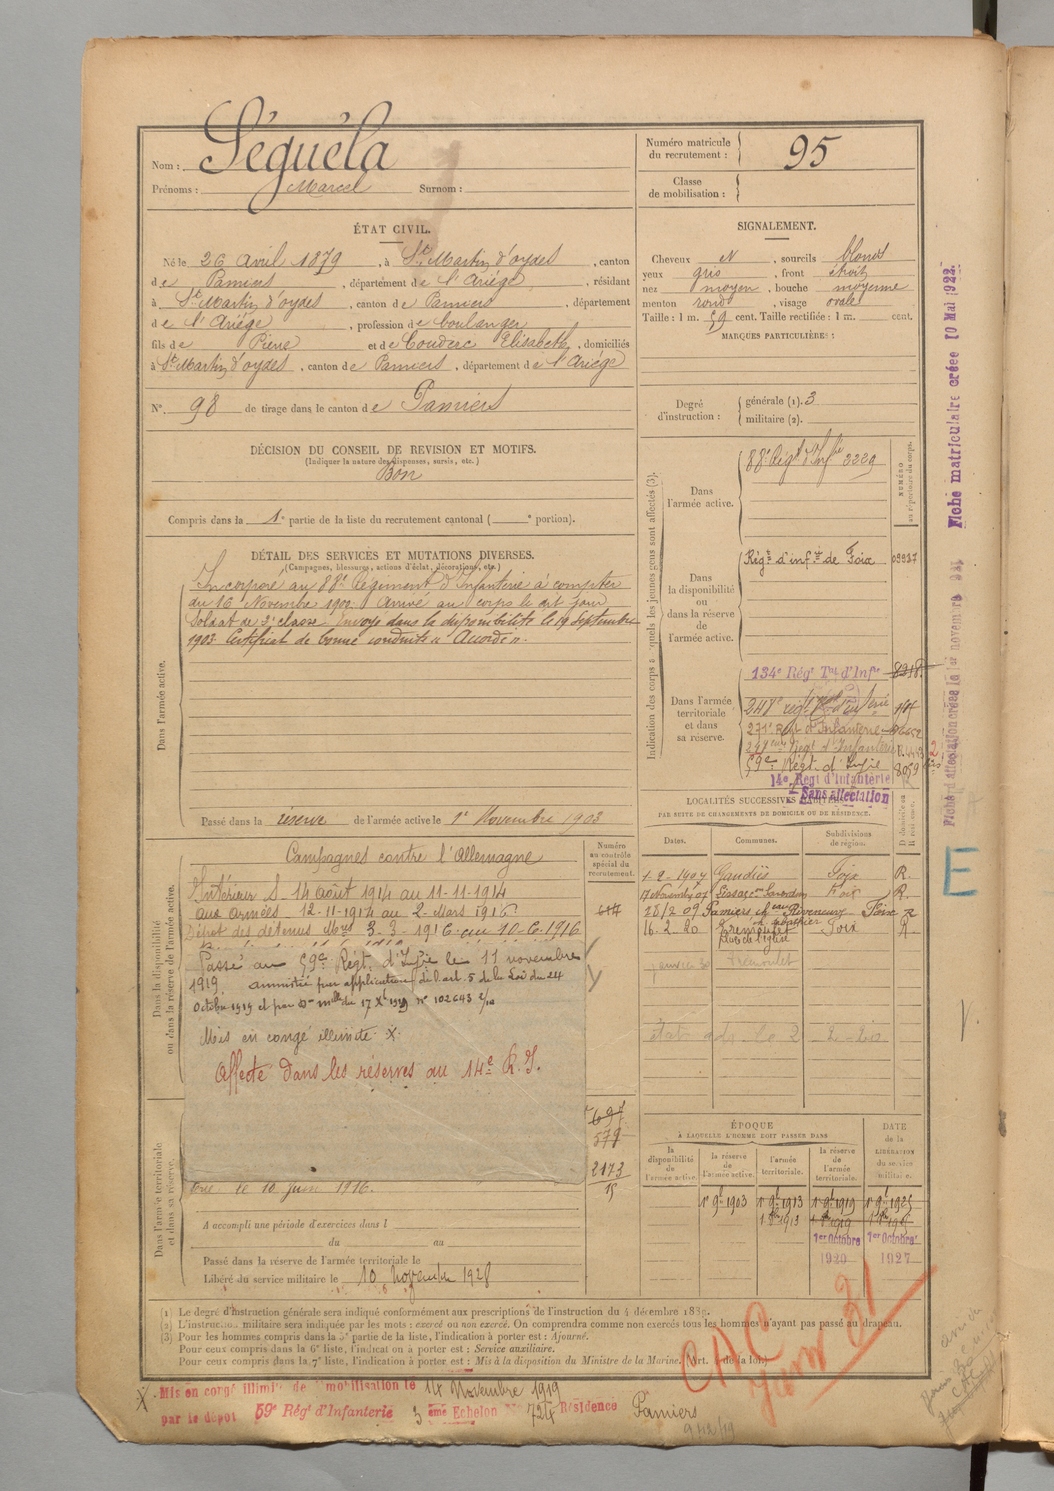 Nom : Séguéla
Prénoms : Marcel Surnom :
Numéro matricule du recrutement : 95
Classe de mobilisation :
ÉTAT CIVIL.
Né le 26 avril 1879, à St Martin d'oydes, canton
de Pamiers, département de l'Ariège, résidant
à St Martin d'oydes, canton de Pamiers, département
de l'Ariège, profession de boulanger
fils de Pierre et de Couderc Elisabeth, domiciliés
à St Martin d'oydes, canton de Pamiers, département de l'Ariège
N° 98 de tirage dans le canton de Pamiers
DÉCISION DU CONSEIL DE REVISION ET MOTIFS.
(Indiquer la nature des dispenses, sursis, etc.)
Bon
Compris dans la 1e partie de la liste du recrutement cantonal ( e portion).
SIGNALEMENT.
Cheveux N, sourcils blonds
yeux gris, front étroit
nez moyen, bouche moyenne
menton rond, visage ovale
Taille : 1 m. 59 cent. Taille rectifiée : 1 m. cent.
MARQUES PARTICULIÈRES :
Degré d'instruction : générale (1). 3
militaire (2).
DÉTAIL DES SERVICES ET MUTATIONS DIVERSES.
(Campagnes, blessures, actions d'éclat, décorations, etc.)
Dans l'armée active.
Incorporé au 88e Régiment d'Infanterie à compter
du 16 Novembre 1900. Arrivé au corps le dit jour
Soldat de 2e classe. Envoyé dans la disponibilité le 19 Septembre
1903. Certificat de bonne conduite "Accordé".
Passé dans la réserve de l'armée active le 1er Novembre 1903
Indication des corps auxquels les jeunes gens sont affectés (3).
NUMÉRO au répertoire du corps.
Dans l'armée active.
88e Régt d'Infie 3229
Dans la disponibilité ou dans la réserve de l'armée active.
Régt d'infie de Foix 09937
Dans l'armée territoriale et dans sa réserve.
134e Régt Tal d'Infie 8218
271e Regt d'Infanterie
59e Régt d'Infie 8059
14e Regt d'Infanterie
Sans affectation
LOCALITÉS SUCCESSIVES HABITÉES
PAR SUITE DE CHANGEMENTS DE DOMICILE OU DE RÉSIDENCE.
Dates. Communes. Subdivisions de région. D domicile ou R résidence.
1-2-1904 Gaudiès Foix R.
Foix R.
Foix R
16.2.20 Tremoulet Foix R.
place de l'église
janvier 30 Tremoulet
Dans la disponibilité ou dans la réserve de l'armée active.
Numéro au contrôle spécial du recrutement.
Campagnes contre l'Allemagne
Intérieur S 14 août 1914 au 11-11-1914
aux armées 12-11-1914 au 2-Mars 1916
Dépôt des détenus 3-3-1916 au 10-6-1916
Passé au 59e Régt. d'Infie le 11 novembre
1919. amnistié par application de l'art. 5 de la Loi du 24
Octobre 1919 et par Don mlle du 17 Xbre 1919 n° 102643 2/10
Mis en congé illimité. X.
Affecté dans les réserves au 14e R.I.
617
697
579
2173
15
Dans l'armée territoriale et dans sa réserve.
le 10 juin 1916.
A accompli une période d'exercices dans l
du au
Passé dans la réserve de l'armée territoriale le
Libéré du service militaire le 10 novembre 1928
ÉPOQUE
À LAQUELLE L'HOMME DOIT PASSER DANS
la disponibilité de l'armée active. la réserve de l'armée active. l'armée territoriale. la réserve de l'armée territoriale.
DATE de la LIBÉRATION du service militaire.
1er 9bre 1903 1er 9bre 1913 1er 9bre 1919 1er 9bre 1925
1er Octobre 1er Octobre
1920 1927
(1) Le degré d'instruction générale sera indiqué conformément aux prescriptions de l'instruction du 4 décembre 1889.
(2) L'instruction militaire sera indiquée par les mots : exercé ou non exercé. On comprendra comme non exercés tous les hommes n'ayant pas passé au drapeau.
(3) Pour les hommes compris dans la 5e partie de la liste, l'indication à porter est : Ajourné.
Pour ceux compris dans la 6e liste, l'indication à porter est : Service auxiliaire.
Pour ceux compris dans la 7e liste, l'indication à porter est : Mis à la disposition du Ministre de la Marine. (Art. 4 de la loi.)
X Mis en congé illimité de démobilisation le 14 Novembre 1919
par le dépôt 59e Régt d'Infanterie 3 ème Echelon No 724 Résidence Pamiers
9/12/19
CAC
Janv 31
Fiche matriculaire créée 10 Mai 1922.
E